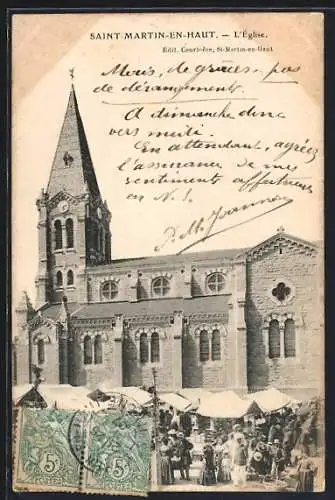 SAINT-MARTIN-EN-HAUT. — L'Église.
Edit. Courbière, St-Martin-en-Haut
Mais, de grâces, pas
de dérangement.
A dimanche donc
vers midi.
En attendant, agréez
l'assurance de mes
sentiments affectueux
en N. S.
J. M. Joannon
5 5
POSTES POSTES